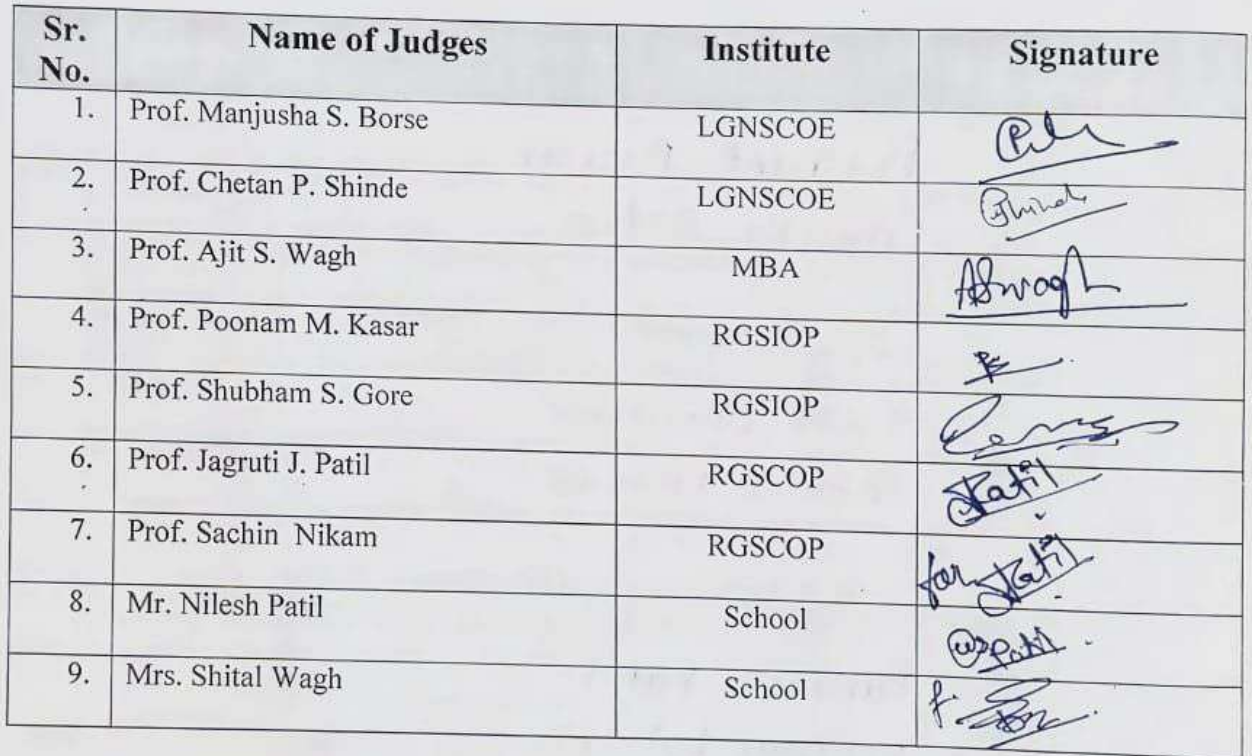 Sr. No. Name of Judges Institute Signature
1. Prof. Manjusha S. Borse LGNSCOE
2. Prof. Chetan P. Shinde LGNSCOE Shinde
3. Prof. Ajit S. Wagh MBA ASwagh
4. Prof. Poonam M. Kasar RGSIOP
5. Prof. Shubham S. Gore RGSIOP
6. Prof. Jagruti J. Patil RGSCOP JPatil
7. Prof. Sachin Nikam RGSCOP for JPatil
8. Mr. Nilesh Patil School Patil
9. Mrs. Shital Wagh School